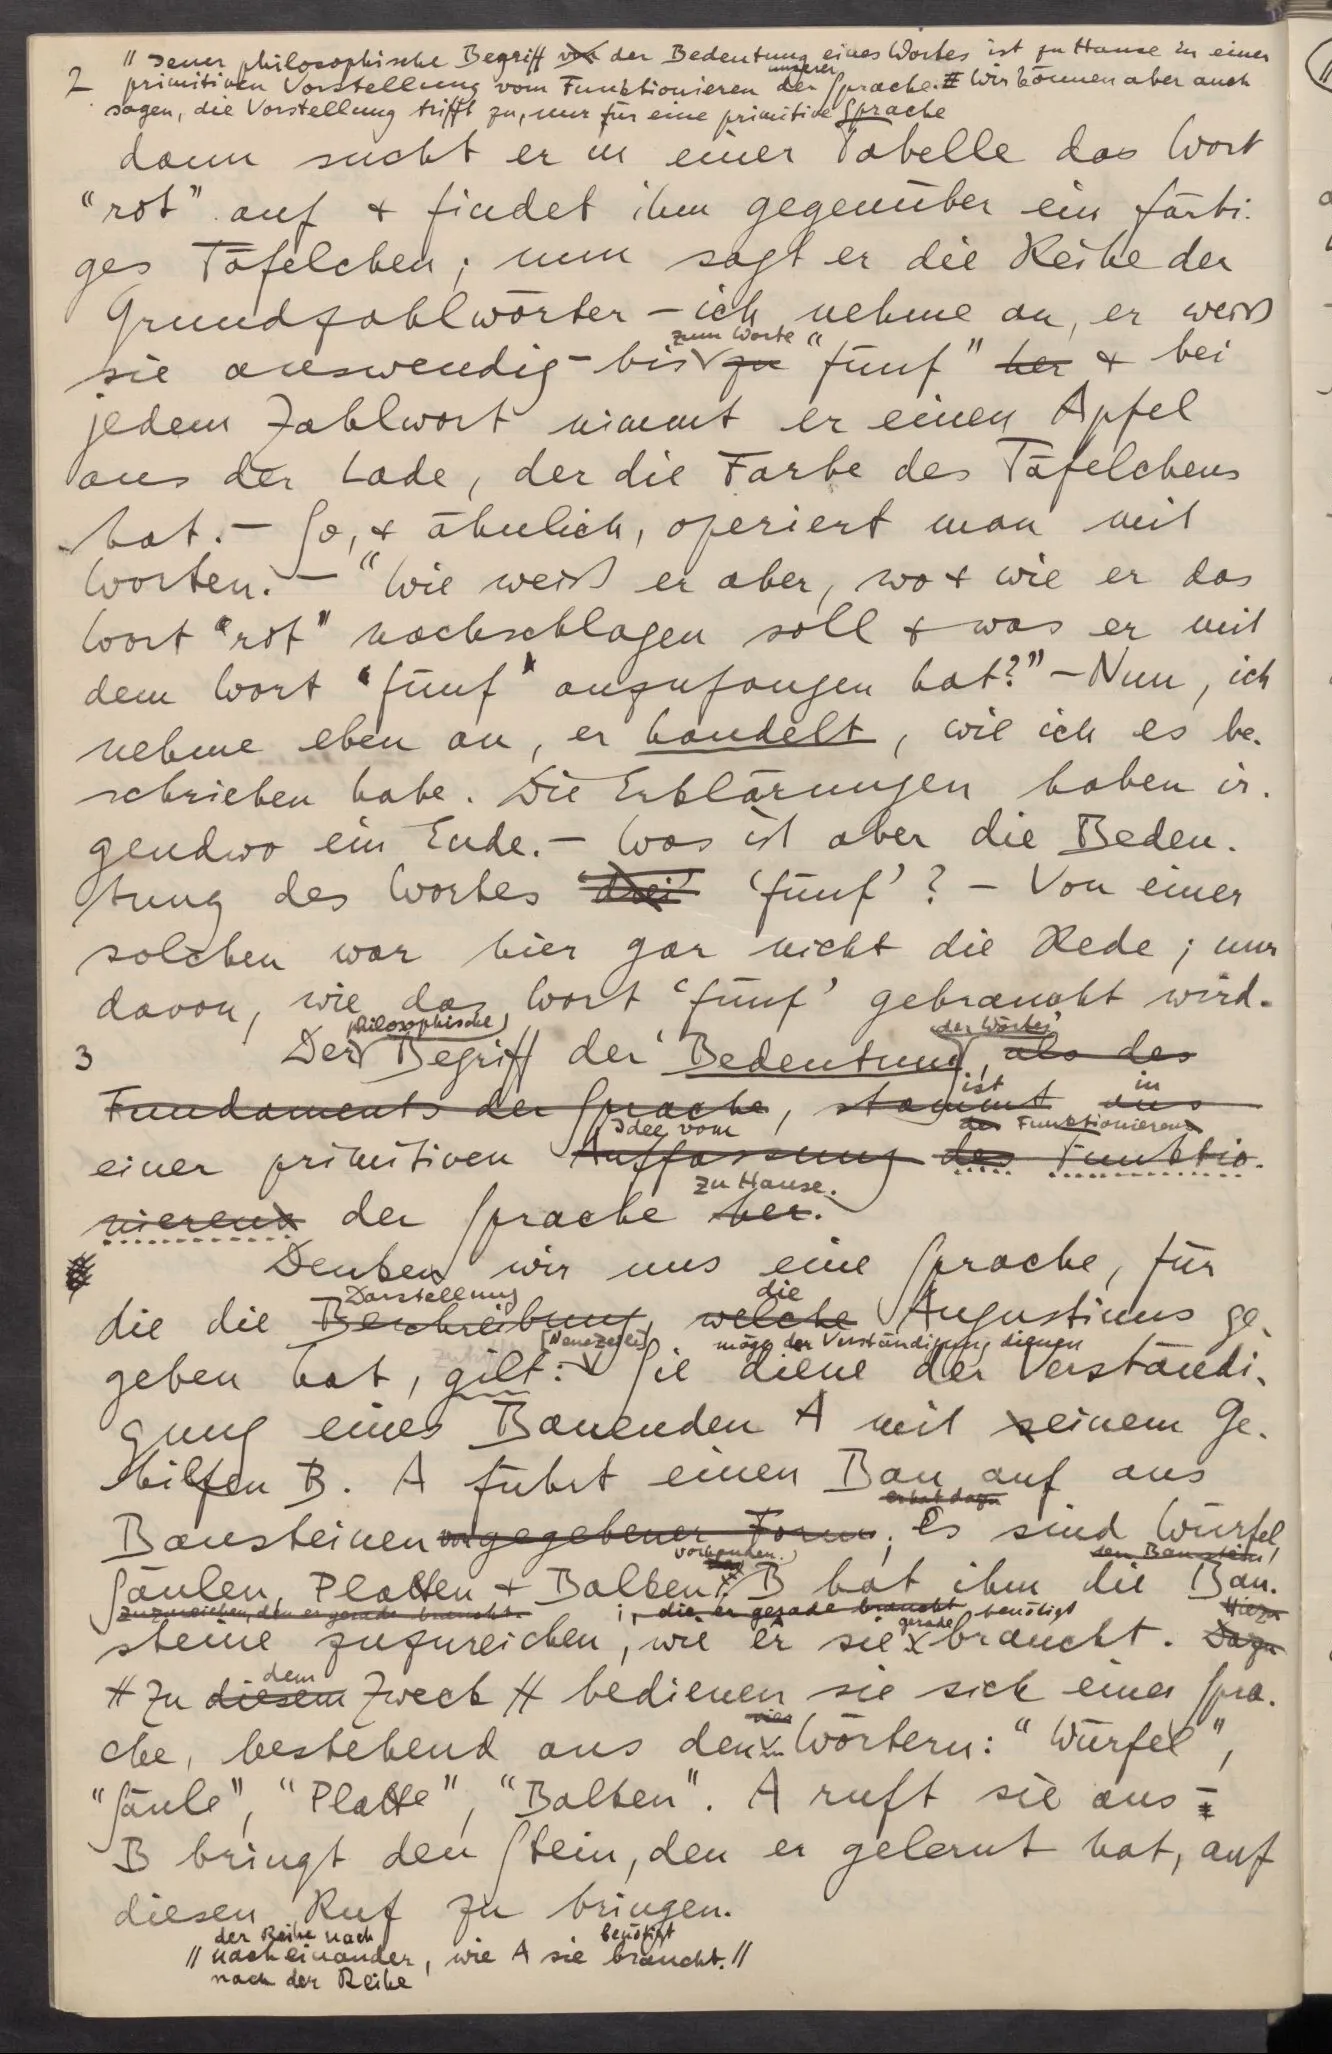 2 " Jener philosophische Begriff von der Bedeutung eines Wortes ist zu Hause in einer
primitiven Vorstellung vom Funktionieren der unserer Sprache. // Wir können aber auch
sagen, die Vorstellung trifft zu, nur für eine primitive Sprache
dann sucht er in einer Tabelle das Wort
“rot” auf + findet ihm gegenüber ein färbi-
ges Täfelchen; nun sagt er die Reihe der
Grundzahlwörter – ich nehme an, er weiß
zum Worte
sie auswendig – bis zu “fünf” her + bei
jedem Zahlwort nimmt er einen Apfel
aus der Lade, der die Farbe des Täfelchens
hat. – So, + ähnlich, operiert man mit
Worten. – “Wie weiß er aber, wo + wie er das
Wort “rot” nachschlagen soll + was er mit
dem Wort ‘fünf’ anzufangen hat?” – Nun, ich
nehme eben an, er handelt, wie ich es be-
schrieben habe. Die Erklärungen haben ir-
gendwo ein Ende. – Was ist aber die Bedeu-
tung des Wortes ‘drei’ ‘fünf’? – Von einer
solchen war hier gar nicht die Rede; nur
davon, wie das Wort ‘fünf’ gebraucht wird.
philosophische der Wörter
3 Der Begriff der Bedeutung, als des
ist in
Fundaments der Sprache, stammt aus
Idee vom des Funktionieren
einer primitiven Auffassung des Funktio-
zu Hause.
nierens der Sprache her.
Denken wir uns eine Sprache, für
Darstellung die
die die Beschreibung, welche Augustinus ge-
[Neue Zeile] möge der Verständigung dienen
geben hat, gilt: Sie diene der Verständi-
gung eines Bauenden A mit seinem Ge-
hilfen B. A führt einen Bau auf aus
er hat dazu
Bausteinen gegebener Form; Es sind Würfel,
vorhanden. den Baustein
Säulen, Platten + Balken. B hat ihm die Bau-
zuzureichen, den er gerade braucht. ; die er gerade braucht gerade benötigt Hiezu
steine zuzureichen, wie er sie braucht. Dazu
dem
// Zu diesem Zweck // bedienen sie sich einer Spra-
vier
che, bestehend aus den Wörtern: “Würfel”,
“Säule”, “Platte”, “Balken”. A ruft sie aus –
B bringt den Stein, den er gelernt hat, auf
diesen Ruf zu bringen.
der Reihe nach benötigt
// nacheinander, wie A sie braucht. //
nach der Reihe